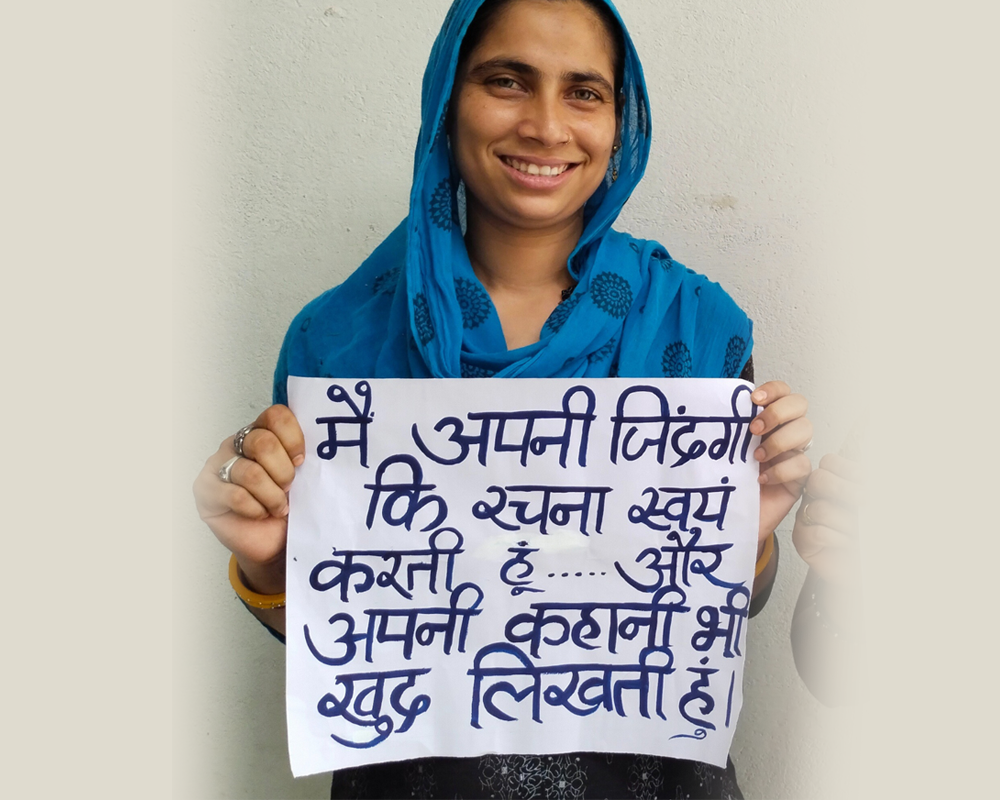 मै अपनी जिंदगी
कि रचना स्वयं
करती हूं...... और
अपनी कहानी भी
खुद लिखती हुं।